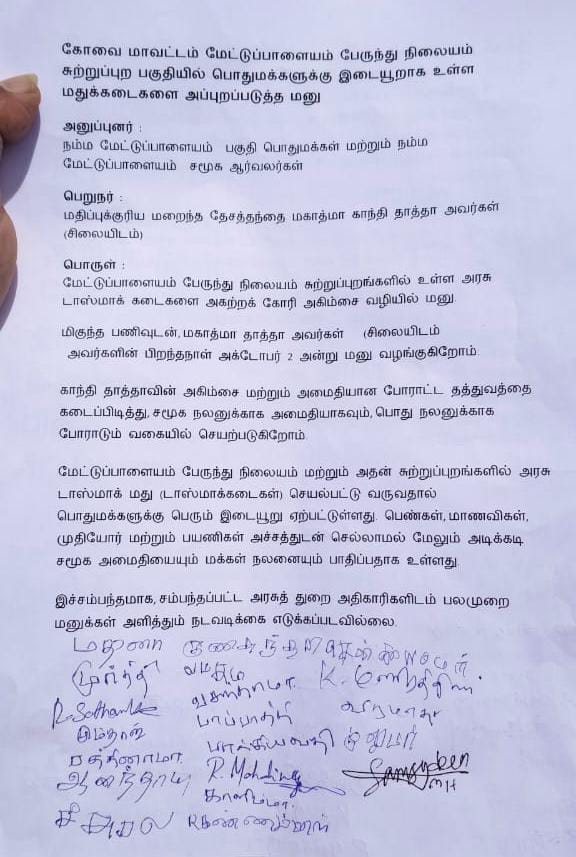 கோவை மாவட்டம் மேட்டுப்பாளையம் பேருந்து நிலையம்
சுற்றுப்புற பகுதியில் பொதுமக்களுக்கு இடையூறாக உள்ள
மதுக்கடைகளை அப்புறப்படுத்த மனு
அனுப்புனர் :
நம்ம மேட்டுப்பாளையம் பகுதி பொதுமக்கள் மற்றும் நம்ம
மேட்டுப்பாளையம் சமூக ஆர்வலர்கள்
பெறுநர் :
மதிப்புக்குரிய மறைந்த தேசத்தந்தை மகாத்மா காந்தி தாத்தா அவர்கள்
(சிலையிடம்)
பொருள் :
மேட்டுப்பாளையம் பேருந்து நிலையம் சுற்றுப்புறங்களில் உள்ள அரசு
டாஸ்மாக் கடைகளை அகற்றக் கோரி அகிம்சை வழியில் மனு.
மிகுந்த பணிவுடன், மகாத்மா தாத்தா அவர்கள் (சிலையிடம்
அவர்களின் பிறந்தநாள் அக்டோபர் 2 அன்று மனு வழங்குகிறோம்.
காந்தி தாத்தாவின் அகிம்சை மற்றும் அமைதியான போராட்ட தத்துவத்தை
கடைப்பிடித்து, சமூக நலனுக்காக அமைதியாகவும், பொது நலனுக்காக
போராடும் வகையில் செயற்படுகிறோம்.
மேட்டுப்பாளையம் பேருந்து நிலையம் மற்றும் அதன் சுற்றுப்புறங்களில் அரசு
டாஸ்மாக் மது (டாஸ்மாக்கடைகள்) செயல்பட்டு வருவதால்
பொதுமக்களுக்கு பெரும் இடையூறு ஏற்பட்டுள்ளது. பெண்கள், மாணவிகள்,
முதியோர் மற்றும் பயணிகள் அச்சத்துடன் செல்லாமல் மேலும் அடிக்கடி
சமூக அமைதியையும் மக்கள் நலனையும் பாதிப்பதாக உள்ளது.
இச்சம்பந்தமாக, சம்பந்தப்பட்ட அரசுத் துறை அதிகாரிகளிடம் பலமுறை
மனுக்கள் அளித்தும் நடவடிக்கை எடுக்கப்படவில்லை.
மூர்த்தி
பாப்பாத்தி
R. Mohding